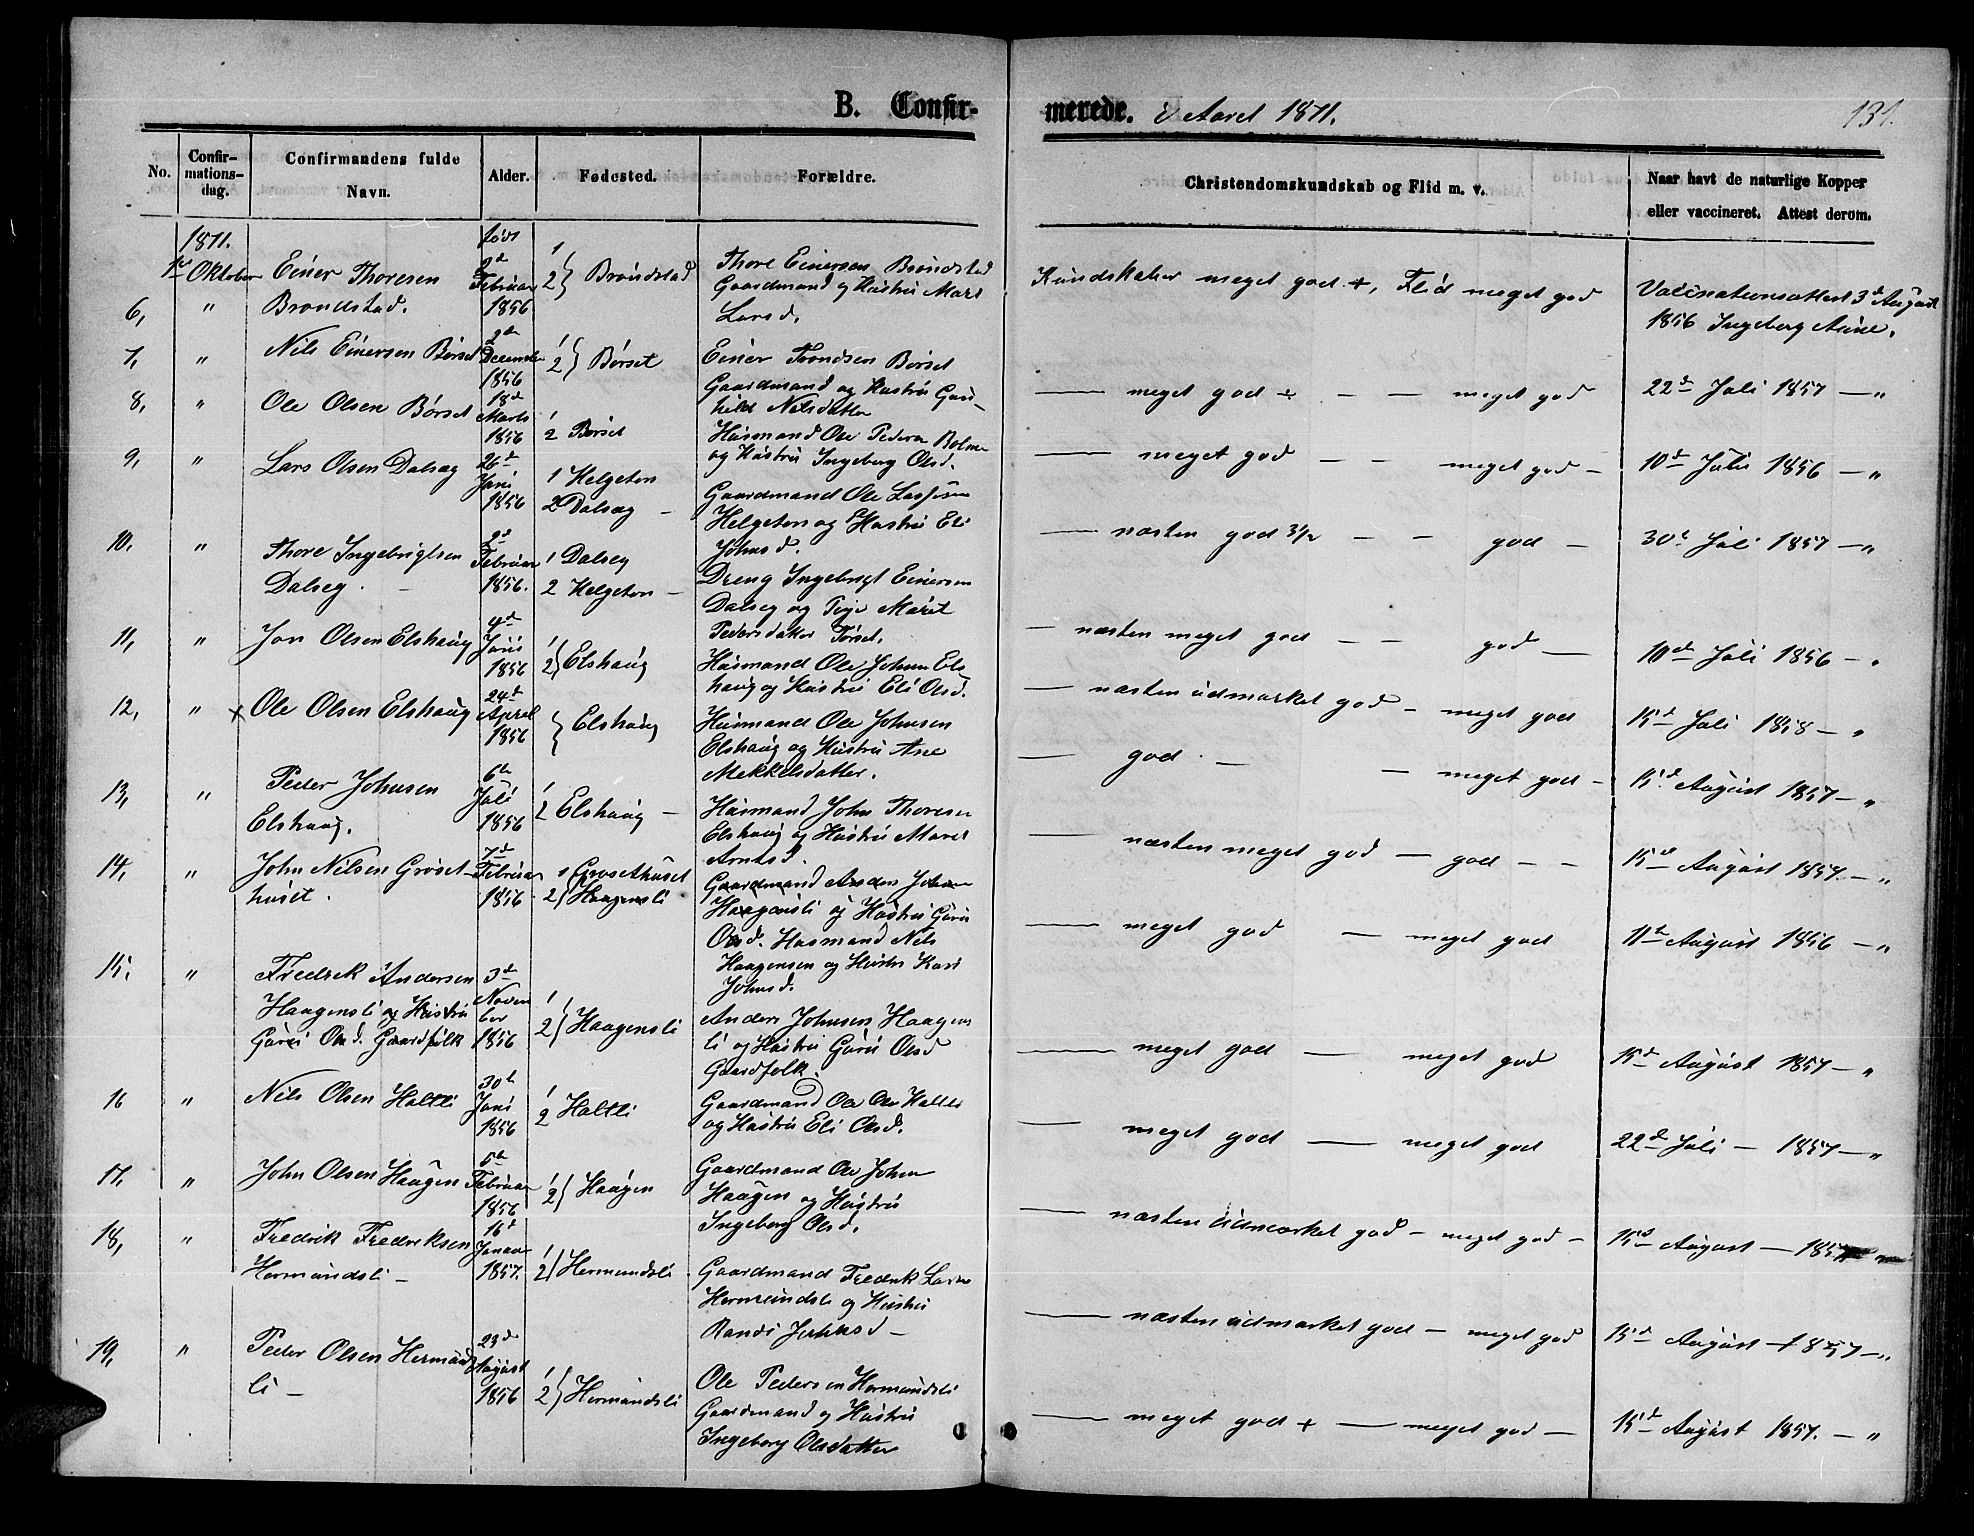 B. Confirmerede. I Aaret 1871.
131.
No.
Confirmations-dag.
Confirmandens fulde Navn.
Alder.
Fødested.
Forældre.
Christendomskundskab og Flid m. v.
Naar havt de naturlige Kopper eller vaccineret. Attest derom.
1871.
1ste Oktober
6,
"
Einer Thoresen
Brøndstad.
født
2d
Februar
1856
1
2} Brøndstad
Thore Einersen Brøndstad
Gaardmand og Hustru Mari
Larsd.
Kundskaber meget god +, Flid meget god
Vaccinationsattest 3d August
1856 Ingeborg Aune.
7,
"
Nils Einersen Børset
2den
December
1856
1
2} Børset
Einer Trondsen Børset
Gaardmand og Hustru Gun-
hild Nilsdatter
— meget god + - — meget god
22d Juli 1857 — "
8,
"
Ole Olsen Børset
18d
Marts
1856
1
2 Børset
Husmand Ole Peders Bolme
og Hustru Ingeborg Olsd.
— meget god — — meget god —
10d Juli 1856 — "
9,
"
Lars Olsen Dalsæg
26d
Juni
1856
1 Helgeton
2 Dalsæg —
Gaardmand Ole Larssen
Helgeton og Hustru Eli
Johnsd.
— næsten god 3½ — — god —
30te Juli 1857 — "
10,
"
Thore Ingebrigtsen
Dalseg. —
2d
Februar
1856.
1 Dalseg
2 Helgeton —
Dreng Ingebrigt Einersen
Dalseg og Pige Marit
Pedersdatter Tørset.
— næsten meget god — — god —
10d Juli 1856 — "
11,
"
Jon Olsen Elshaug
4d
Juni
1856
1
2} Elshaug
Husmand Ole Johnsen Els
haug og Hustru Eli Olsd.
— næsten udmærket god — meget god
15d Juli 1858 — "
12,
"
x Ole Olsen Elshaug
24d
April
1856
} Elshaug
Husmand Ole Johnsen
Elshaug og Hustru Ane
Mekkelsdatter.
— god. — — meget god —
15d August 1857 — "
13,
"
Peder Johnsen
Elshaug.
6te
Juli
1856
1
2 Elshaug —
Husmand John Thoresen
Elshaug og Hustru Marit
Arntsd.
— næsten meget god — god — —
15d August 1857. — "
14,
"
John Nilsen Grøset-
huset.
7d
Februar
1856.
1 Grøsethuset
2} Haagensli
Gaardmand Anders Johnsen
Haagensli og Hustru Guru
Olsd. Husmand Nils
Haagensen og Hustru Kari
Johnsd.
— meget god — meget god
11te August 1856 — "
15,
"
Fredrik Andersen
Haagensli og Hustru
Guru Olsd. Gaardfolk
3d
Novem
ber
1856
1
2} Haagensli
Anders Johnsen Haagens
li og Hustru Guru Olsd
Gaardfolk.
— meget god — meget god
15d August 1857 — "
16
"
Nils Olsen Holtli
30te
Juni
1856
1
2 Holtli
Gaardmand Ole Ols Holtli
og Hustru Eli Olsd.
— meget god — meget god
22de Juli — 1857 — "
17,
"
John Olsen Haugen
5te
Februar
1856
1
2} Haugen
Gaardmand Ole Johnsen
Haugen og Hustru
Ingeborg Olsd.
— næsten udmærket god — meget god —
15d August — 1857
18,
"
Fredrik Fredriksen
Hermundsli —
16d
Januar
1857.
1
2} Hermundsli
Gaardmand Fredrik Larsen
Hermundsli og Hustru
Randi Johnsd —
— næsten udmærket god — meget god
15d August — 1857 — "
19,
"
Peder Olsen Hermunds
li —
23d
August
1856
1
2} Hermundsli
Ole Pedersen Hermundsli
Gaardmand og Hustru
Ingeborg Olsdatter
— meget god + — meget god —
15d August 1857. — "